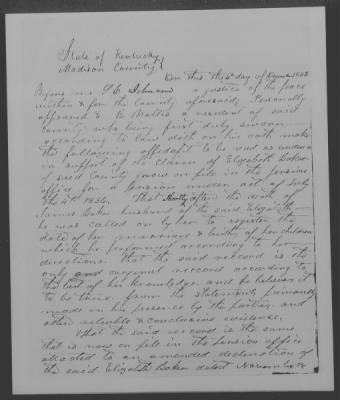 State of Kentucky
Madison County
On this the 4th day of December
Before me a justice of the peace
within & for the County aforesaid, Personally
appeared a resident of said
county who being first duly sworn
according to law doth on his oath make
the following affidavit to be used as evidence
in support of the claim of Elizabeth Baker
of said County now on file in the pension
office for a pension under act of July
the 4th 1836. That shortly after the death of
James Baker husband of the said Elizabeth
he was called on by her to register the
date of her marriage & births of her children
which he performed according to her
directions. That the said reccord is the
only and original reccord according to
the best of his knowledge and he believes it
to be true, from the statements
made in his presence by the parties and
other reliable & conclusive evidence.
That the said reccord is the same
that is now on file in the pension office
attached to an amended declaration of
the said Elizabeth Baker dated November